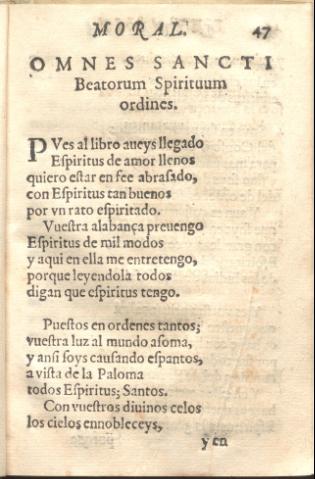 MORAL. 47
OMNES SANCTI
Beatorum Spirituum
ordines.
PVes al libro aueys llegado
Eſpiritus de amor llenos
quiero eſtar en fee abraſado,
con Eſpiritus tan buenos
por vn rato eſpiritado.
Vueſtra alabança preuengo
Eſpiritus de mil modos
y aqui en ella me entretengo,
porque leyendola todos
digan que eſpiritus tengo.
Pueſtos en ordenes tantos;
vueſtra luz al mundo aſoma,
y anſi ſoys cauſando eſpantos,
a viſta de la Paloma
todos Eſpiritus; Santos.
Con vueſtros diuinos celos
los cielos ennobleceys,
y en